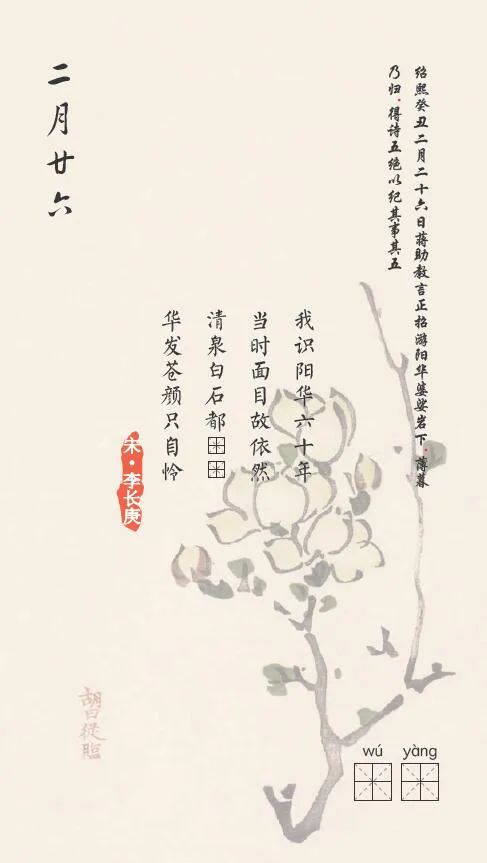 绍熙癸丑二月二十六日蒋助教言正招游阳华婆娑岩下，薄暮
乃归，得诗五绝以纪其事其五
二月廿六
我识阳华六十年
当时面目故依然
清泉白石都
华发苍颜只自怜
宋·李长庚
胡曰從臨
wú yàng